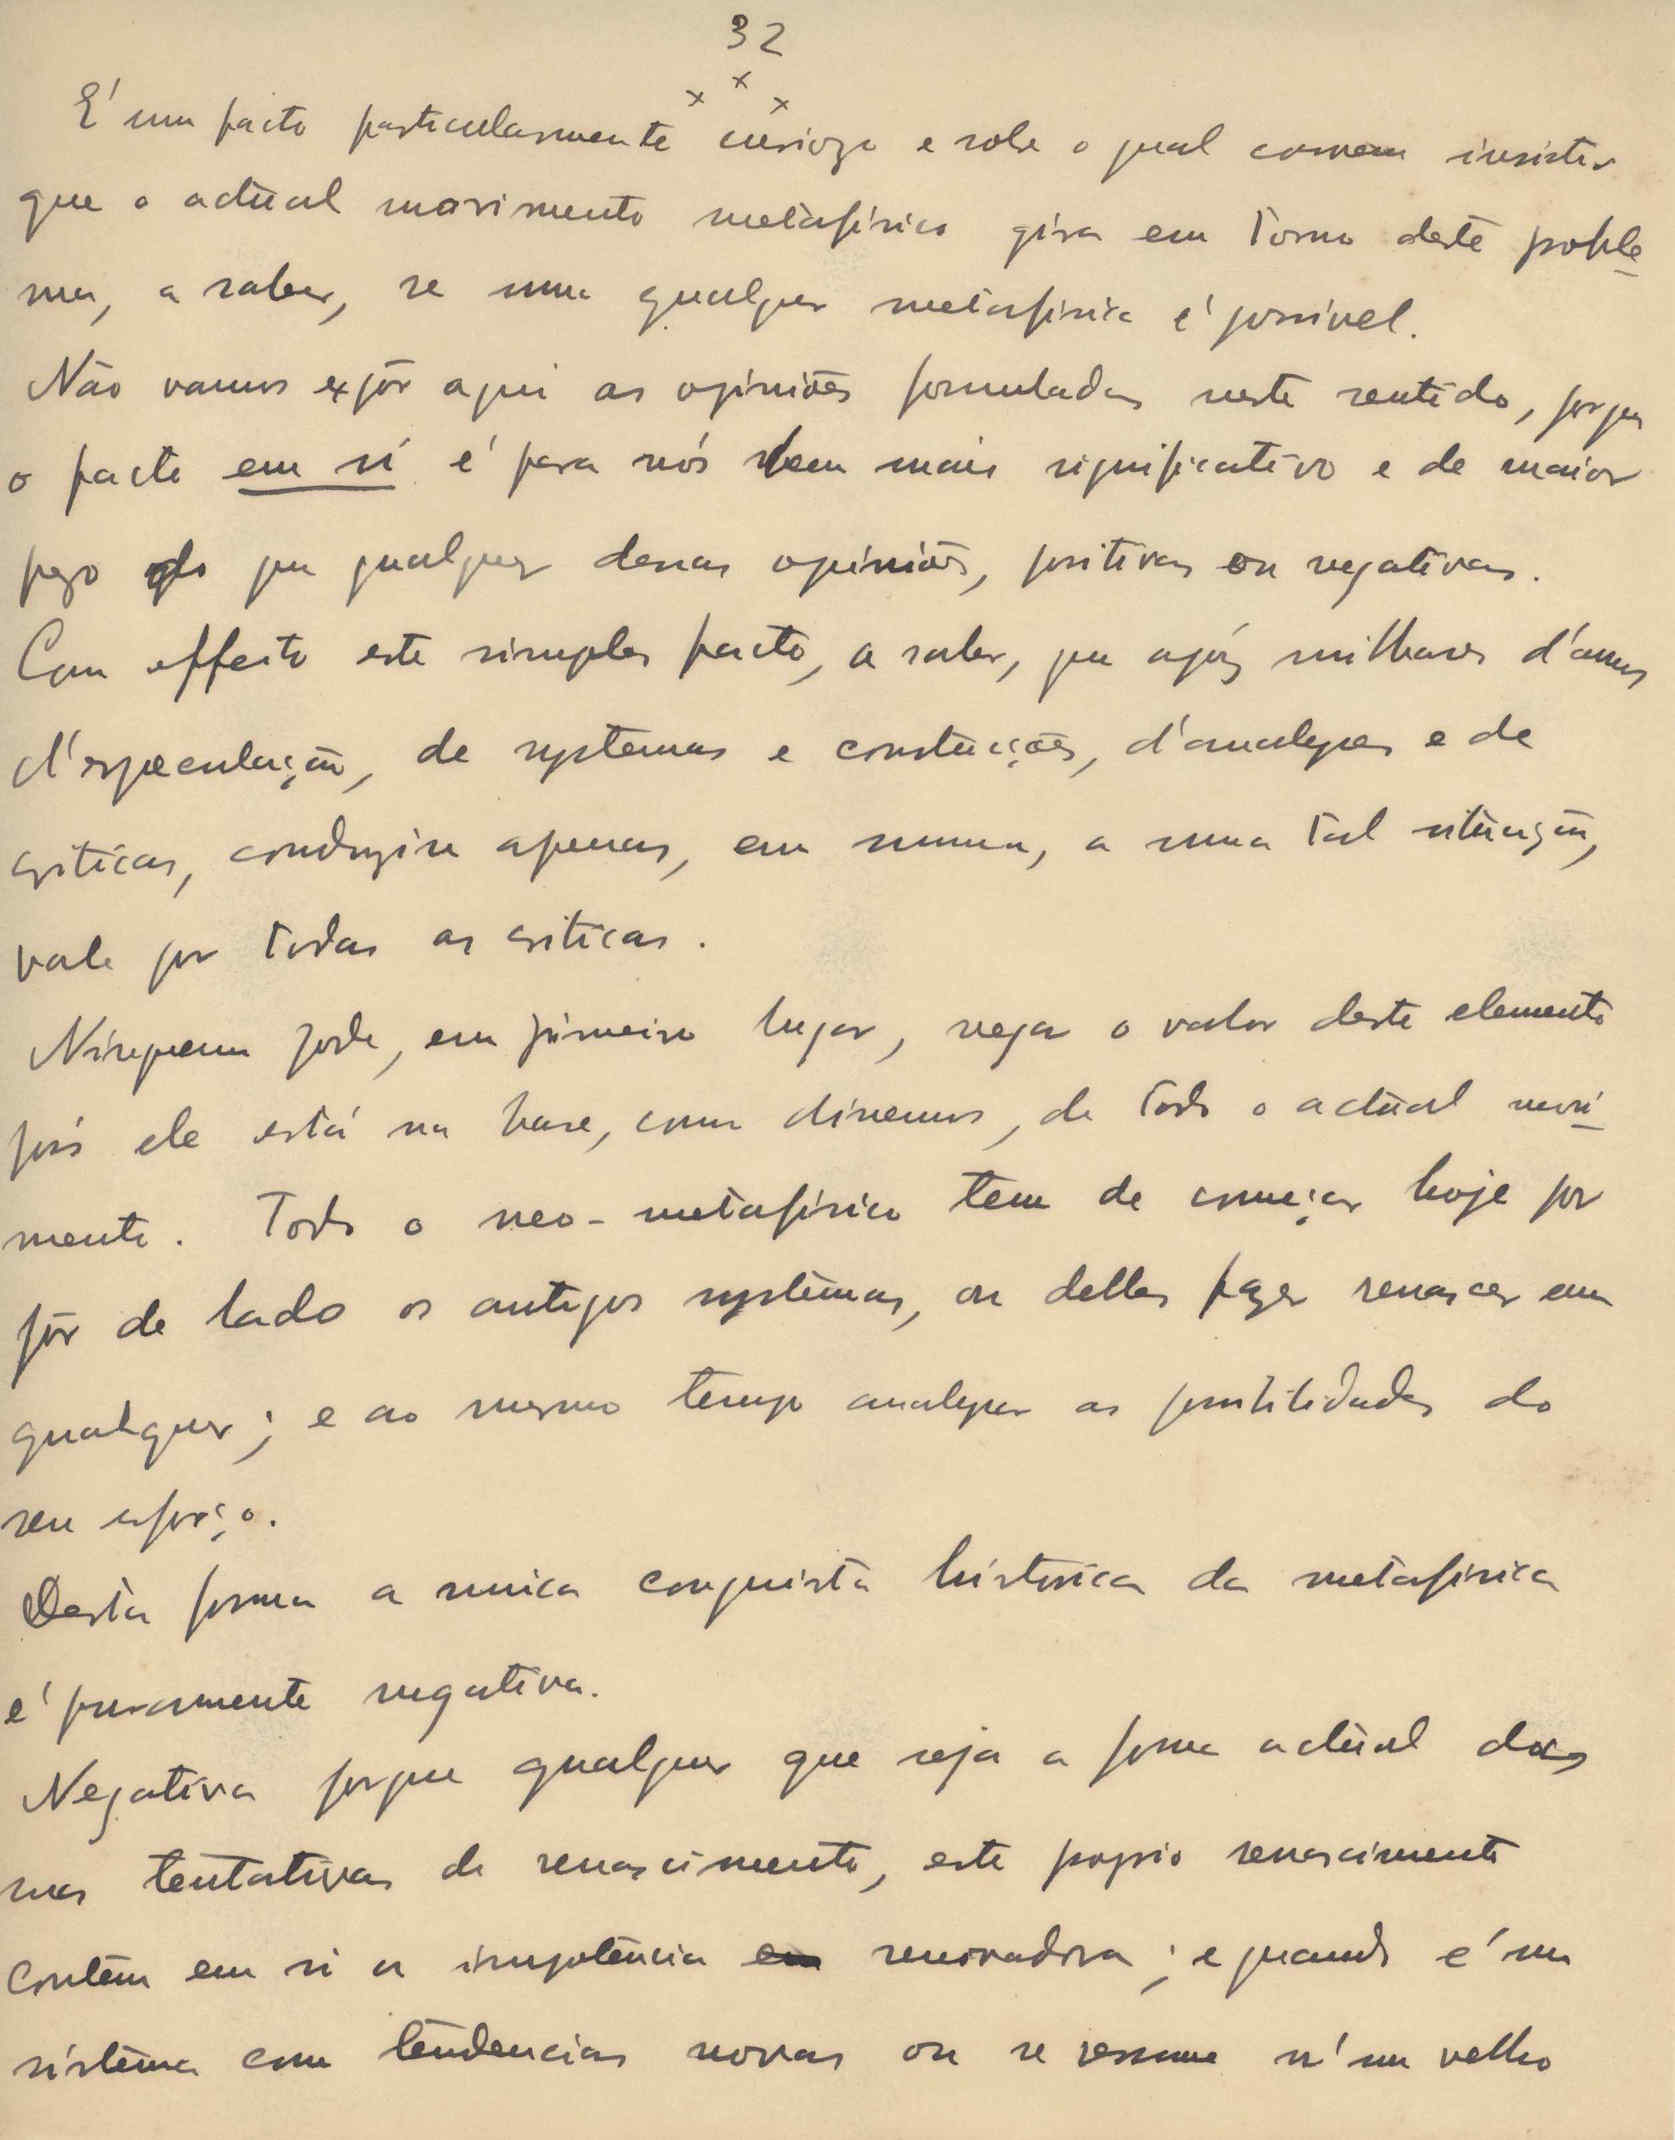 32
x x x
E' um facto particularmente curiozo e sobre o qual convem insistir
que o actual movimento metafisico gira em torno deste proble-
ma, a saber, se uma qualquer metafisica é possivel.
Não vamos expôr aqui as opiniões formuladas neste sentido, porque
o facto em si é para nós bem mais significativo e de maior
pezo do que qualquer dessas opiniões, positivas ou negativas.
Com effeito este simples facto, a saber, que após milhares d'annos
d'especulação, de systemas e construcções, d'analyses e de
criticas, conduzise apenas, em summa, a uma tal situação,
vale por todas as criticas.
Ninguem pode, em primeiro lugar, negar o valor deste elemento
pois ele está na base, como dissemos, de todo o actual movi-
mento. Todo o neo-metafisico tem de começar hoje por
pôr de lado os antigos systemas, ou delles fazer renascer um
qualquer; e ao mesmo tempo analysar as possibilidades do
seu esforço.
Desta forma a unica conquista historica da metafisica
é puramente negativa.
Negativa porque qualquer que seja a forma actual das
suas tentativas de renascimento, este proprio renascimento
contêm em si a impotência renovadora; e quando é um
sistêma com tendencias novas ou se resume n'um velho